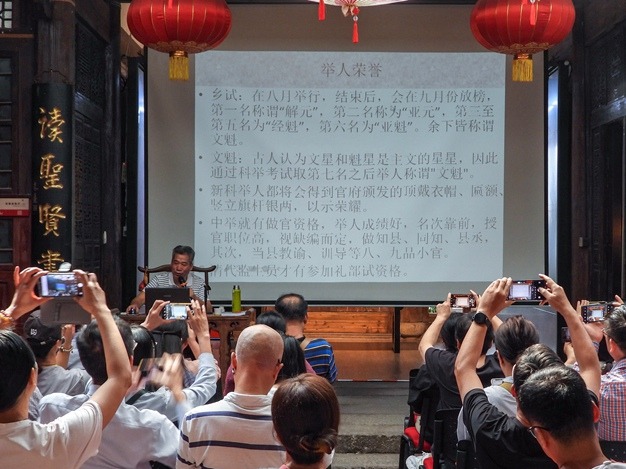 举人荣誉
• 乡试：在八月举行，结束后，会在九月份放榜，
第一名称谓“解元”，第二名称为“亚元”，第三至
第五名为“经魁”，第六名为“亚魁”。余下皆称谓
文魁。
• 文魁：古人认为文星和魁星是主文的星星，因此
通过科举考试取第七名之后举人称谓“文魁”。
• 新科举人都将会得到官府颁发的顶戴衣帽、匾额、
竖立旗杆银两，以示荣耀。
• 中举就有做官资格，举人成绩好，名次靠前，授
官职位高，视缺编而定，做知县、同知、县丞，
其次，当县教谕、训导等八、九品小官。
代监 才有参加礼部试资格。
读圣贤书